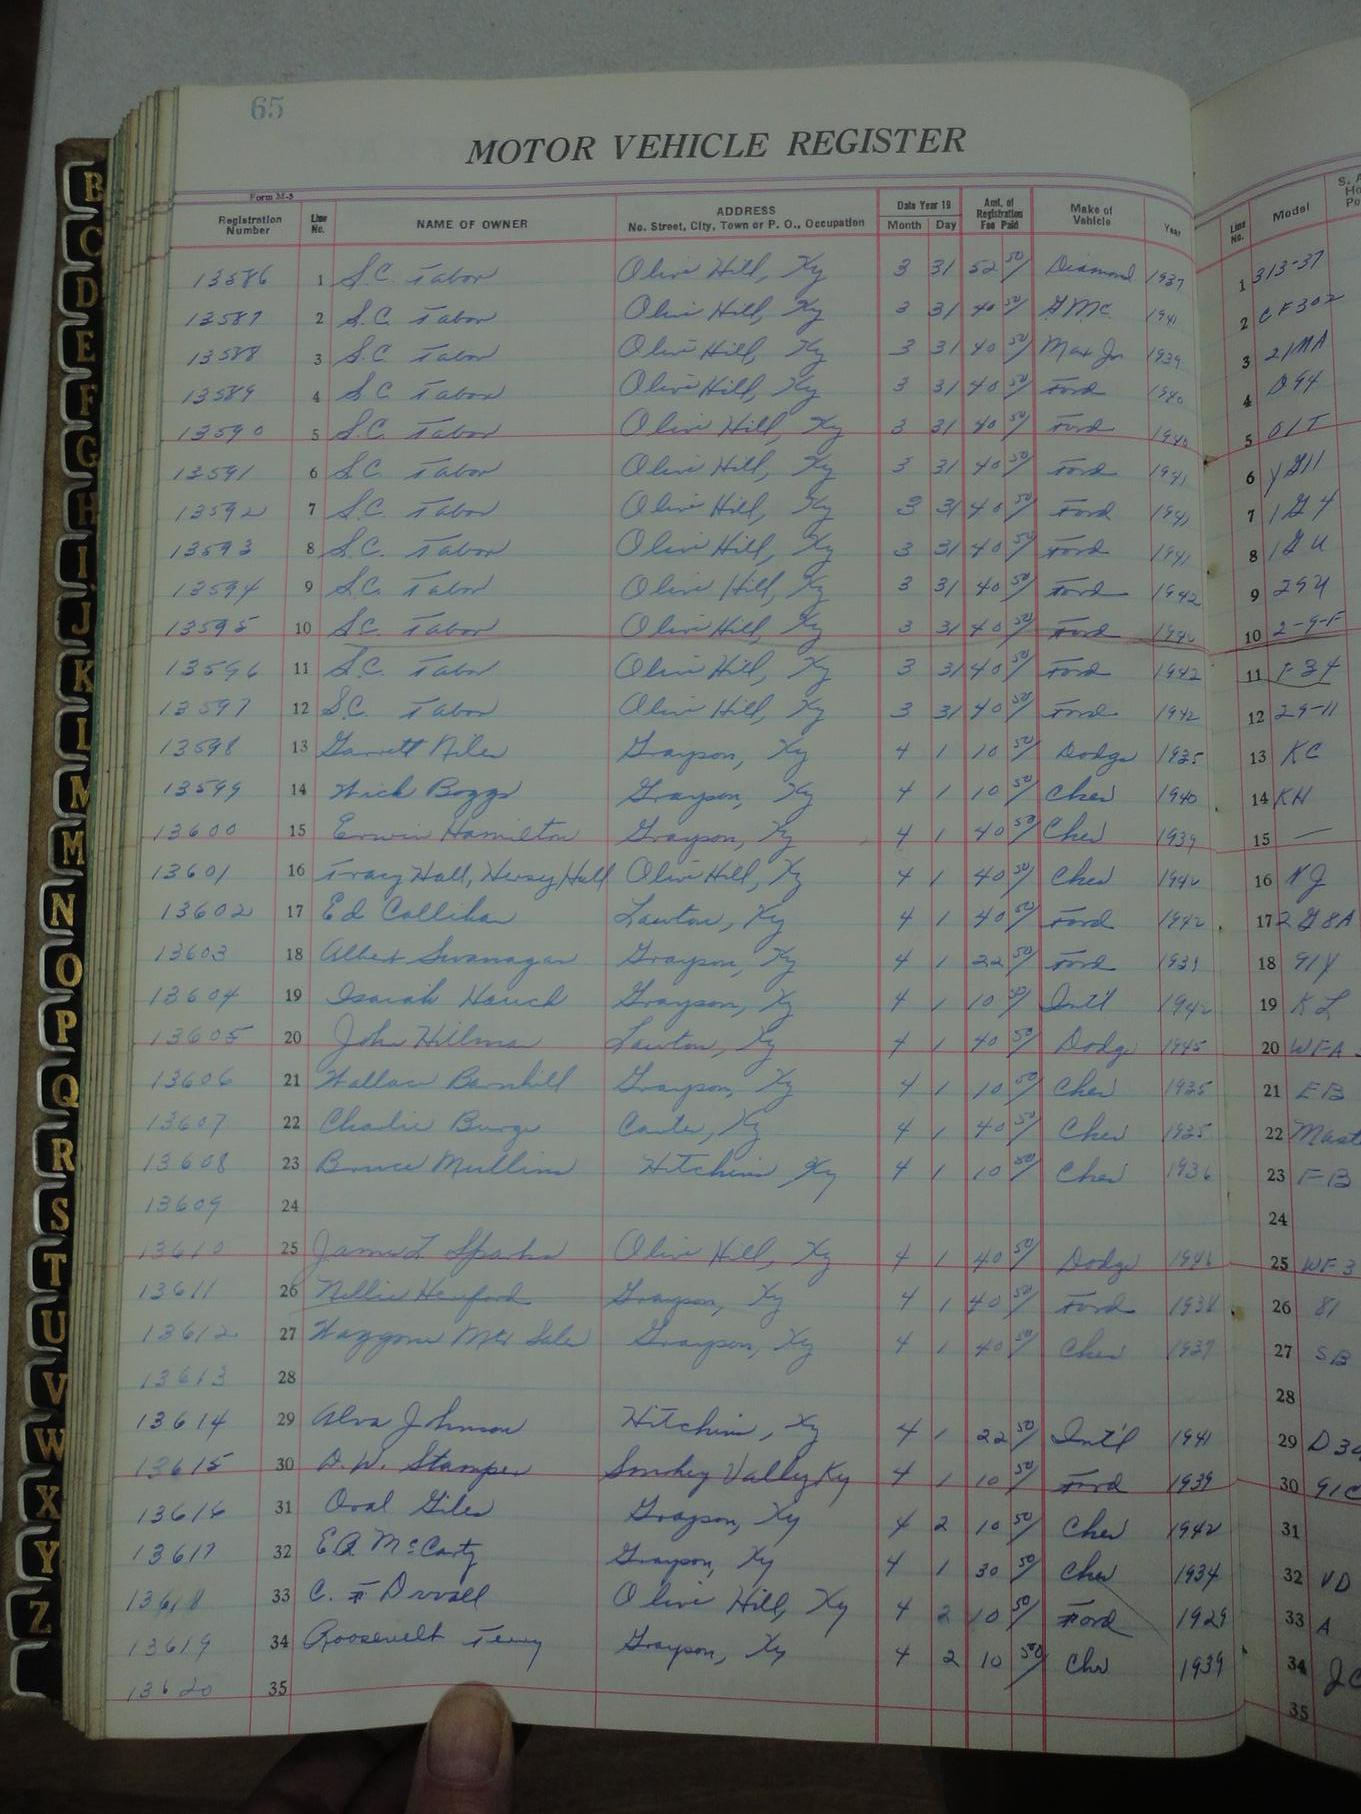 65
MOTOR VEHICLE REGISTER
Form M-5
Registration Number Line No. NAME OF OWNER ADDRESS No. Street, City, Town or P. O., Occupation Date Year 19 Month Day Amt. of Registration Fee Paid Make of Vehicle Year Line No. Model
13586 1 S.C. Tabor Olive Hill, Ky 3 31 52 50 Diamond 1937 1 313-37
13587 2 S.C. Tabor Olive Hill, Ky 3 31 40 50 GMC 1941 2 CF302
13588 3 S.C. Tabor Olive Hill, Ky 3 31 40 50 1939 3 21MA
13589 4 S.C. Tabor Olive Hill, Ky 3 31 40 50 Ford 1940 4
13590 5 S.C. Tabor Olive Hill, Ky 3 31 40 50 Ford 1940 5 01T
13591 6 S.C. Tabor Olive Hill, Ky 3 31 40 50 Ford 1941 6
13592 7 S.C. Tabor Olive Hill, Ky 3 31 40 50 Ford 1941 7 1G4
13593 8 S.C. Tabor Olive Hill, Ky 3 31 40 50 Ford 1941 8
13594 9 S.C. Tabor Olive Hill, Ky 3 31 40 50 Ford 1942 9
13595 10 S.C. Tabor Olive Hill, Ky 3 31 40 50 Ford 10 2-9-F
13596 11 S.C. Tabor Olive Hill, Ky 3 31 40 50 Ford 1942 11
13597 12 S.C. Tabor Olive Hill, Ky 3 31 40 50 Ford 1942 12 29-11
13598 13 Garrett Niles Grayson, Ky 4 1 10 50 Dodge 1935 13 KC
13599 14 Boggs Grayson, Ky 4 1 10 50 Chev 1940 14 KH
13600 15 Erwin Hamilton Grayson, Ky 4 1 40 50 Chev 1939 15 —
13601 16 Tracy Hall, Hersey Hall Olive Hill, Ky 4 1 40 50 Chev 16
13602 17 Ed Callihan Lawton, Ky 4 1 40 50 Ford 1942 17 2G8A
13603 18 Albert Swanagan Grayson, Ky 4 1 22 50 Ford 1939 18 91Y
13604 19 Isaiah Grayson, Ky 4 1 10 50 Int'l 19 KL
13605 20 John Hillman Lawton, Ky 4 1 40 50 Dodge 1945 20 WFA
13606 21 Wallace Barnhill Grayson, Ky 4 1 10 50 Chev 1935 21 EB
13607 22 Charlie Burge Carter, Ky 4 1 40 50 Chev 1935 22 Mast
13608 23 Bruce Mullins Hitchins, Ky 4 1 10 50 Chev 1936 23 FB
13609 24 24
13610 25 James L Sparks Olive Hill, Ky 4 1 40 50 Dodge 1946 25 WF3
13611 26 Nellie Grayson, Ky 4 1 40 50 Ford 1938 26 81
13612 27 Grayson, Ky 4 1 40 50 Chev 1937 27 SB
13613 28 28
13614 29 Alva Johnson Hitchins, Ky 4 1 22 50 Int'l 1941 29
13615 30 D.W. Stamper Smokey Valley Ky 4 1 10 50 Ford 1939 30 91C
13616 31 Oral Giles Grayson, Ky 4 2 10 50 Chev 1942 31
13617 32 E.A. McCarty Grayson, Ky 4 1 30 50 Chev 1934 32
13618 33 C. F Duvall Olive Hill, Ky 4 2 10 50 Ford 1929 33 A
13619 34 Roosevelt Terry Grayson, Ky 4 2 10 50 Chev 1939 34
13620 35 35
B
C
D
E
F
G
H
I
J
K
L
M
M
N
O
P
Q
R
S
T
U
V
W
X
Y
Z